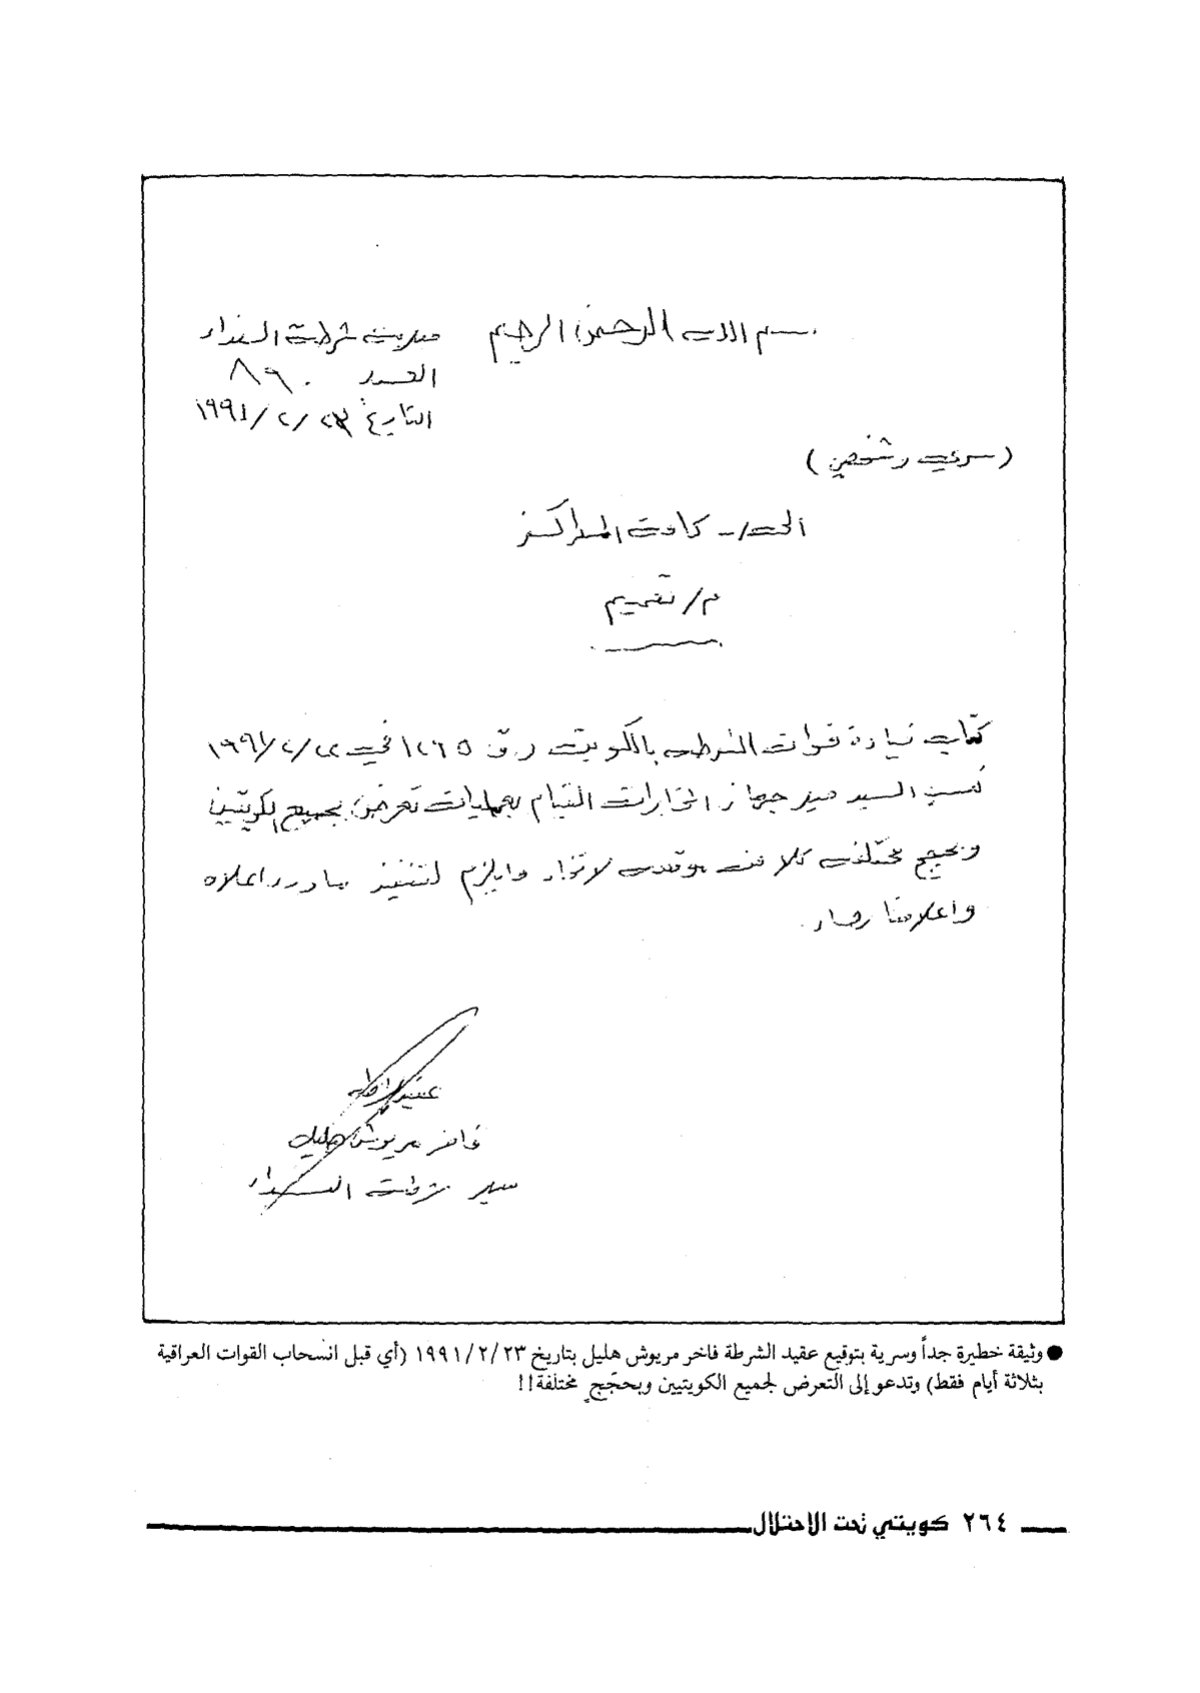 بسم الله الرحمن الرحيم
مديرية شرطة النداء
العدد / ٨٩٠
التاريخ ٢٣ / ٢ / ١٩٩١
( سري وشخصي )
الى / ـ كافة المراكز
م / تعميم
كتاب قيادة قوات الشرطة بالكويت ١٢٦٥ في ٢٢ / ٢ / ١٩٩١
نسب السيد مدير جهاز المخابرات القيام بعمليات تعرض بجميع الكويتيين
وبحجج مختلفة كلا من موقعه لاتخاذ مايلزم لتنفيذ ماورد اعلاه
واعلامنا رجاء .
عقيد الشرطة
فاخر مريوش هليل
مدير شرطة النداء
● وثيقة خطيرة جداً وسرية بتوقيع عقيد الشرطة فاخر مريوش هليل بتاريخ ١٩٩١/٢/٢٣ (أي قبل انسحاب القوات العراقية
بثلاثة أيام فقط) وتدعو إلى التعرض لجميع الكويتيين وبحجَجٍ مختلفة!!
٢٦٤ كويتي تحت الاحتلال